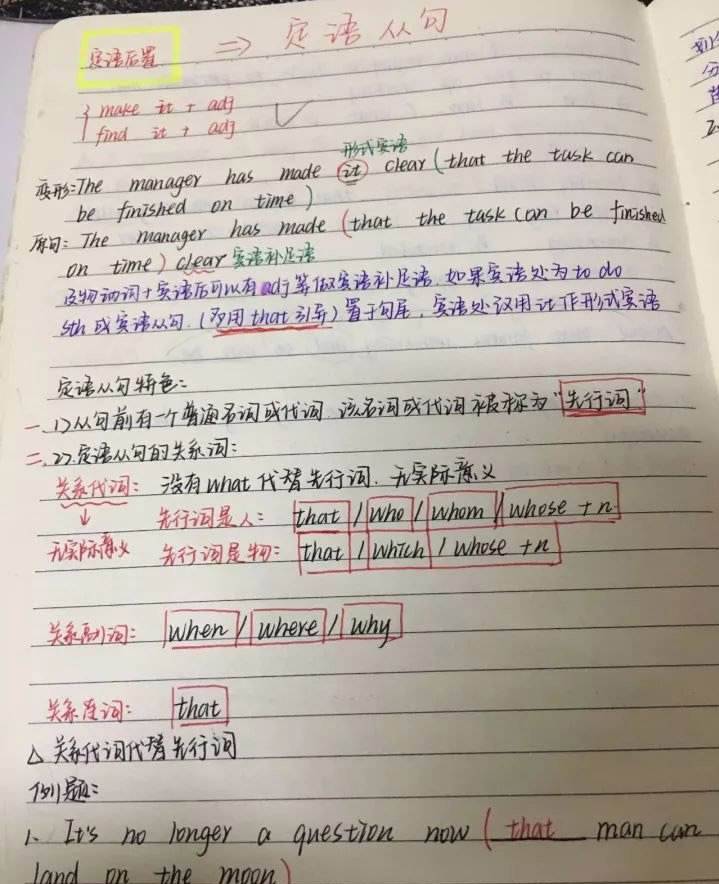 定语后置 ⇒ 定语从句
make it + adj
find it + adj
形式宾语
变形:The manager has made it clear (that the task can
be finished on time)
原句: The manager has made (that the task can be finished
on time) clear 宾语补足语
及物动词+宾语后可以有adj等做宾语补足语.如果宾语处为to do
sth 或宾语从句.(多用that引导)置于句尾,宾语处议用it作形式宾语
定语从句特色:
一、1>从句前有一个普通名词或代词.该名词或代词被称为"先行词"
二、2>.定语从句的关系词:
关系代词: 没有what 代替先行词.无实际意义
↓ 先行词是人: that / who / whom / whose + n.
无实际意义 先行词是物: that / which / whose + n
关系副词: when / where / why
关系连词: that
△ 关系代词代替先行词
例题:
1. It's no longer a question now (that man can
land on the moon)